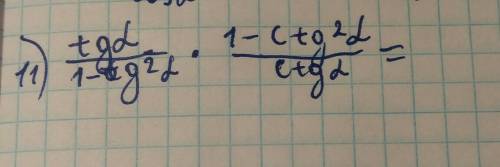 11) tgα / 1-tg²α · 1-ctg²α / ctgα =